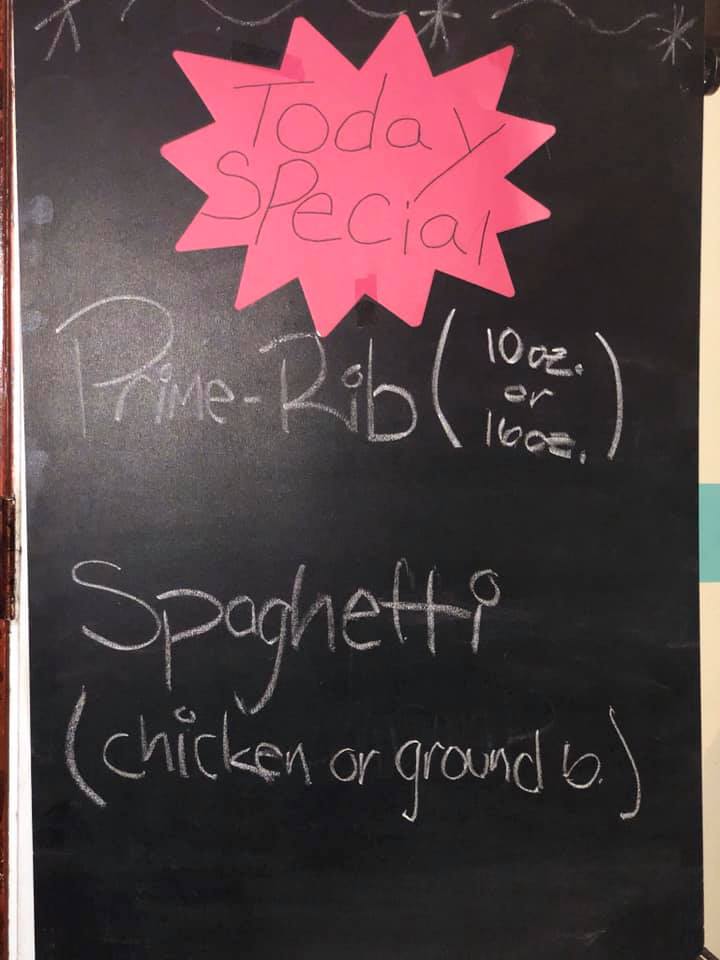 Today
SPecial
Prime-Rib (10oz. or 16oz.)
Spaghetti
(chicken or ground b.)